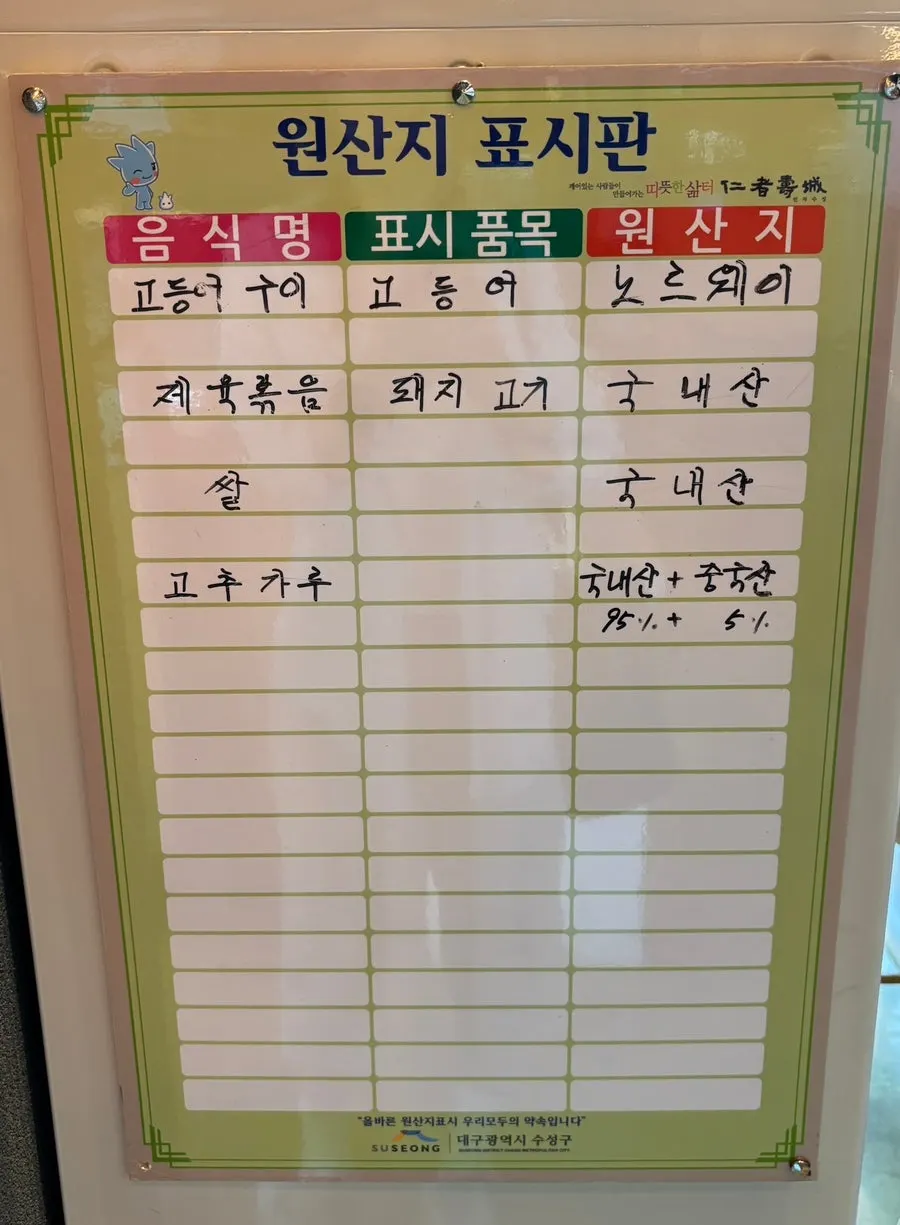 원산지 표시판
깨어있는 사람들이
만들어가는 따뜻한 삶터 仁者壽城
인자수성
음식명 표시품목 원산지
고등어 구이 고등어 노르웨이
제육볶음 돼지고기 국내산
쌀 국내산
고추가루 국내산 + 중국산
95% + 5%
"올바른 원산지표시 우리모두의 약속입니다"
SUSEONG 대구광역시 수성구
SUSEONG DISTRICT DAEGU METROPOLITAN CITY